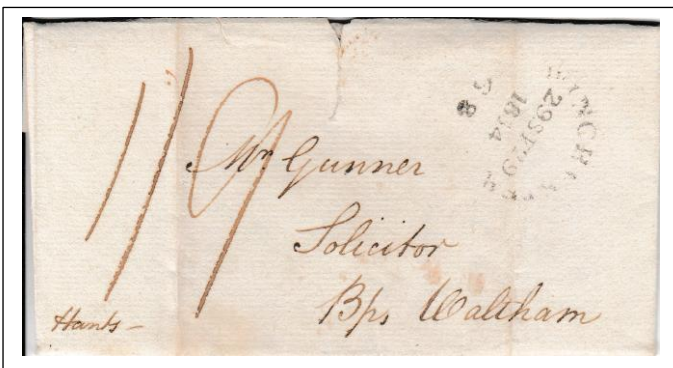 WINCHESTER
1814
68
1/9
Mr Gunner
Solicitor
Bps Waltham
Hants –